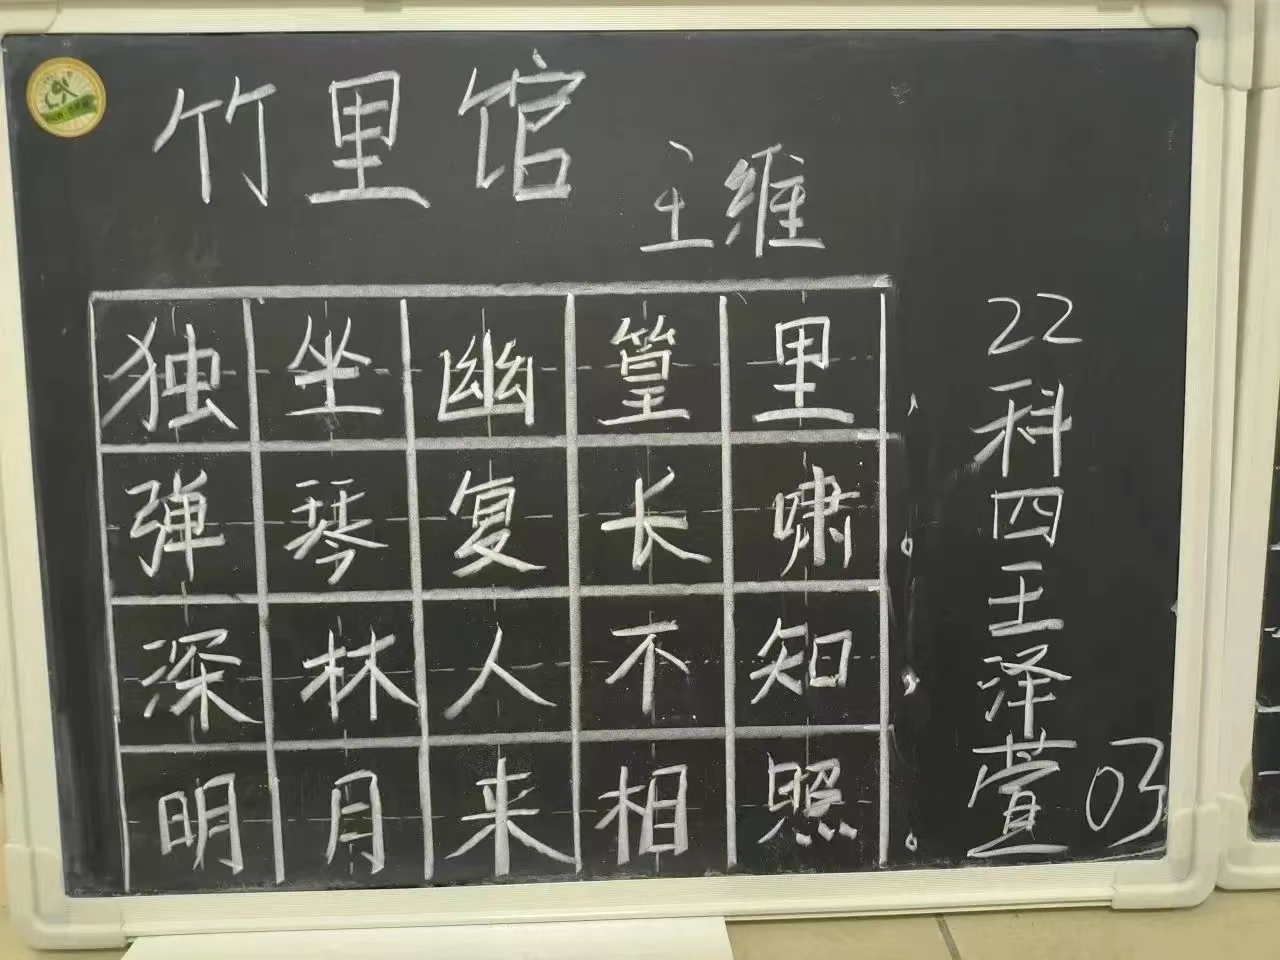 竹里馆
王维
独坐幽篁里，
弹琴复长啸。
深林人不知，
明月来相照。
22科四王泽萱 03